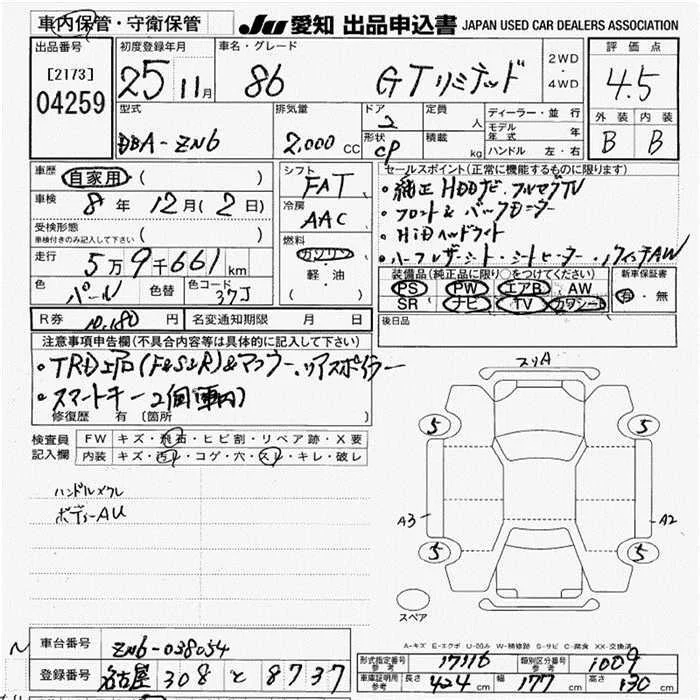 車内保管・守衛保管
JU 愛知 出品申込書 JAPAN USED CAR DEALERS ASSOCIATION
出品番号 初度登録年月 車名・グレード 2WD・4WD 評価点
[2173] 04259 25 11月 86 GTリミテッド 4.5
型式 排気量 ドア 定員 ディーラー・並行 外装 内装
DBA-ZN6 2,000 CC 2 人 モデル年式 年 B B
形状 CP 積載 kg ハンドル 左・右
車歴 自家用 ( ) シフト FAT セールスポイント(正常に機能するものに限ります)
車検 8年 12月(2日) 冷房 AAC ・純正HDDナビ、フルセグTV
受検形態 車検付きのみ記入して下さい ( ) ・フロント&バックモニター
走行 5万9千661km 燃料 ガソリン・軽・油 ・HiDヘッドライト
・ハーフレザーシート・シートヒーター・17インチAW
色 パール 色替 色コード 37J 装備品(純正品に限り○をつけてください) 新車保証書
PS PW エアB AW 有・無
SR ナビ TV カワシート
R券 10,180円 名変通知期限 月 日 後日品
注意事項申告欄(不具合内容等は具体的に記入して下さい)
・TRDエアロ(F&S&R)&マフラー、リアスポイラー
・スマートキー2個(車内)
修復歴 有 〔箇所 〕
検査員記入欄 FW キズ・飛石・ヒビ割・リペア跡・X要
内装 キズ・汚レ・コゲ・穴・スレ・キレ・破レ
ハンドルメクレ
ボデーAU
スリA
5 5
A3 A2
5 5
スペア
A-キズ E-エクボ U-凹み W-補修跡 S-サビ C-腐食 XX-交換済
車台番号 ZN6-038054
登録番号 名古屋 308 と 8737
形式指定番号 参考 17116 類別区分番号 参考 1009
車庫証明用 参考 長さ 424cm 幅 177cm 高さ 130cm